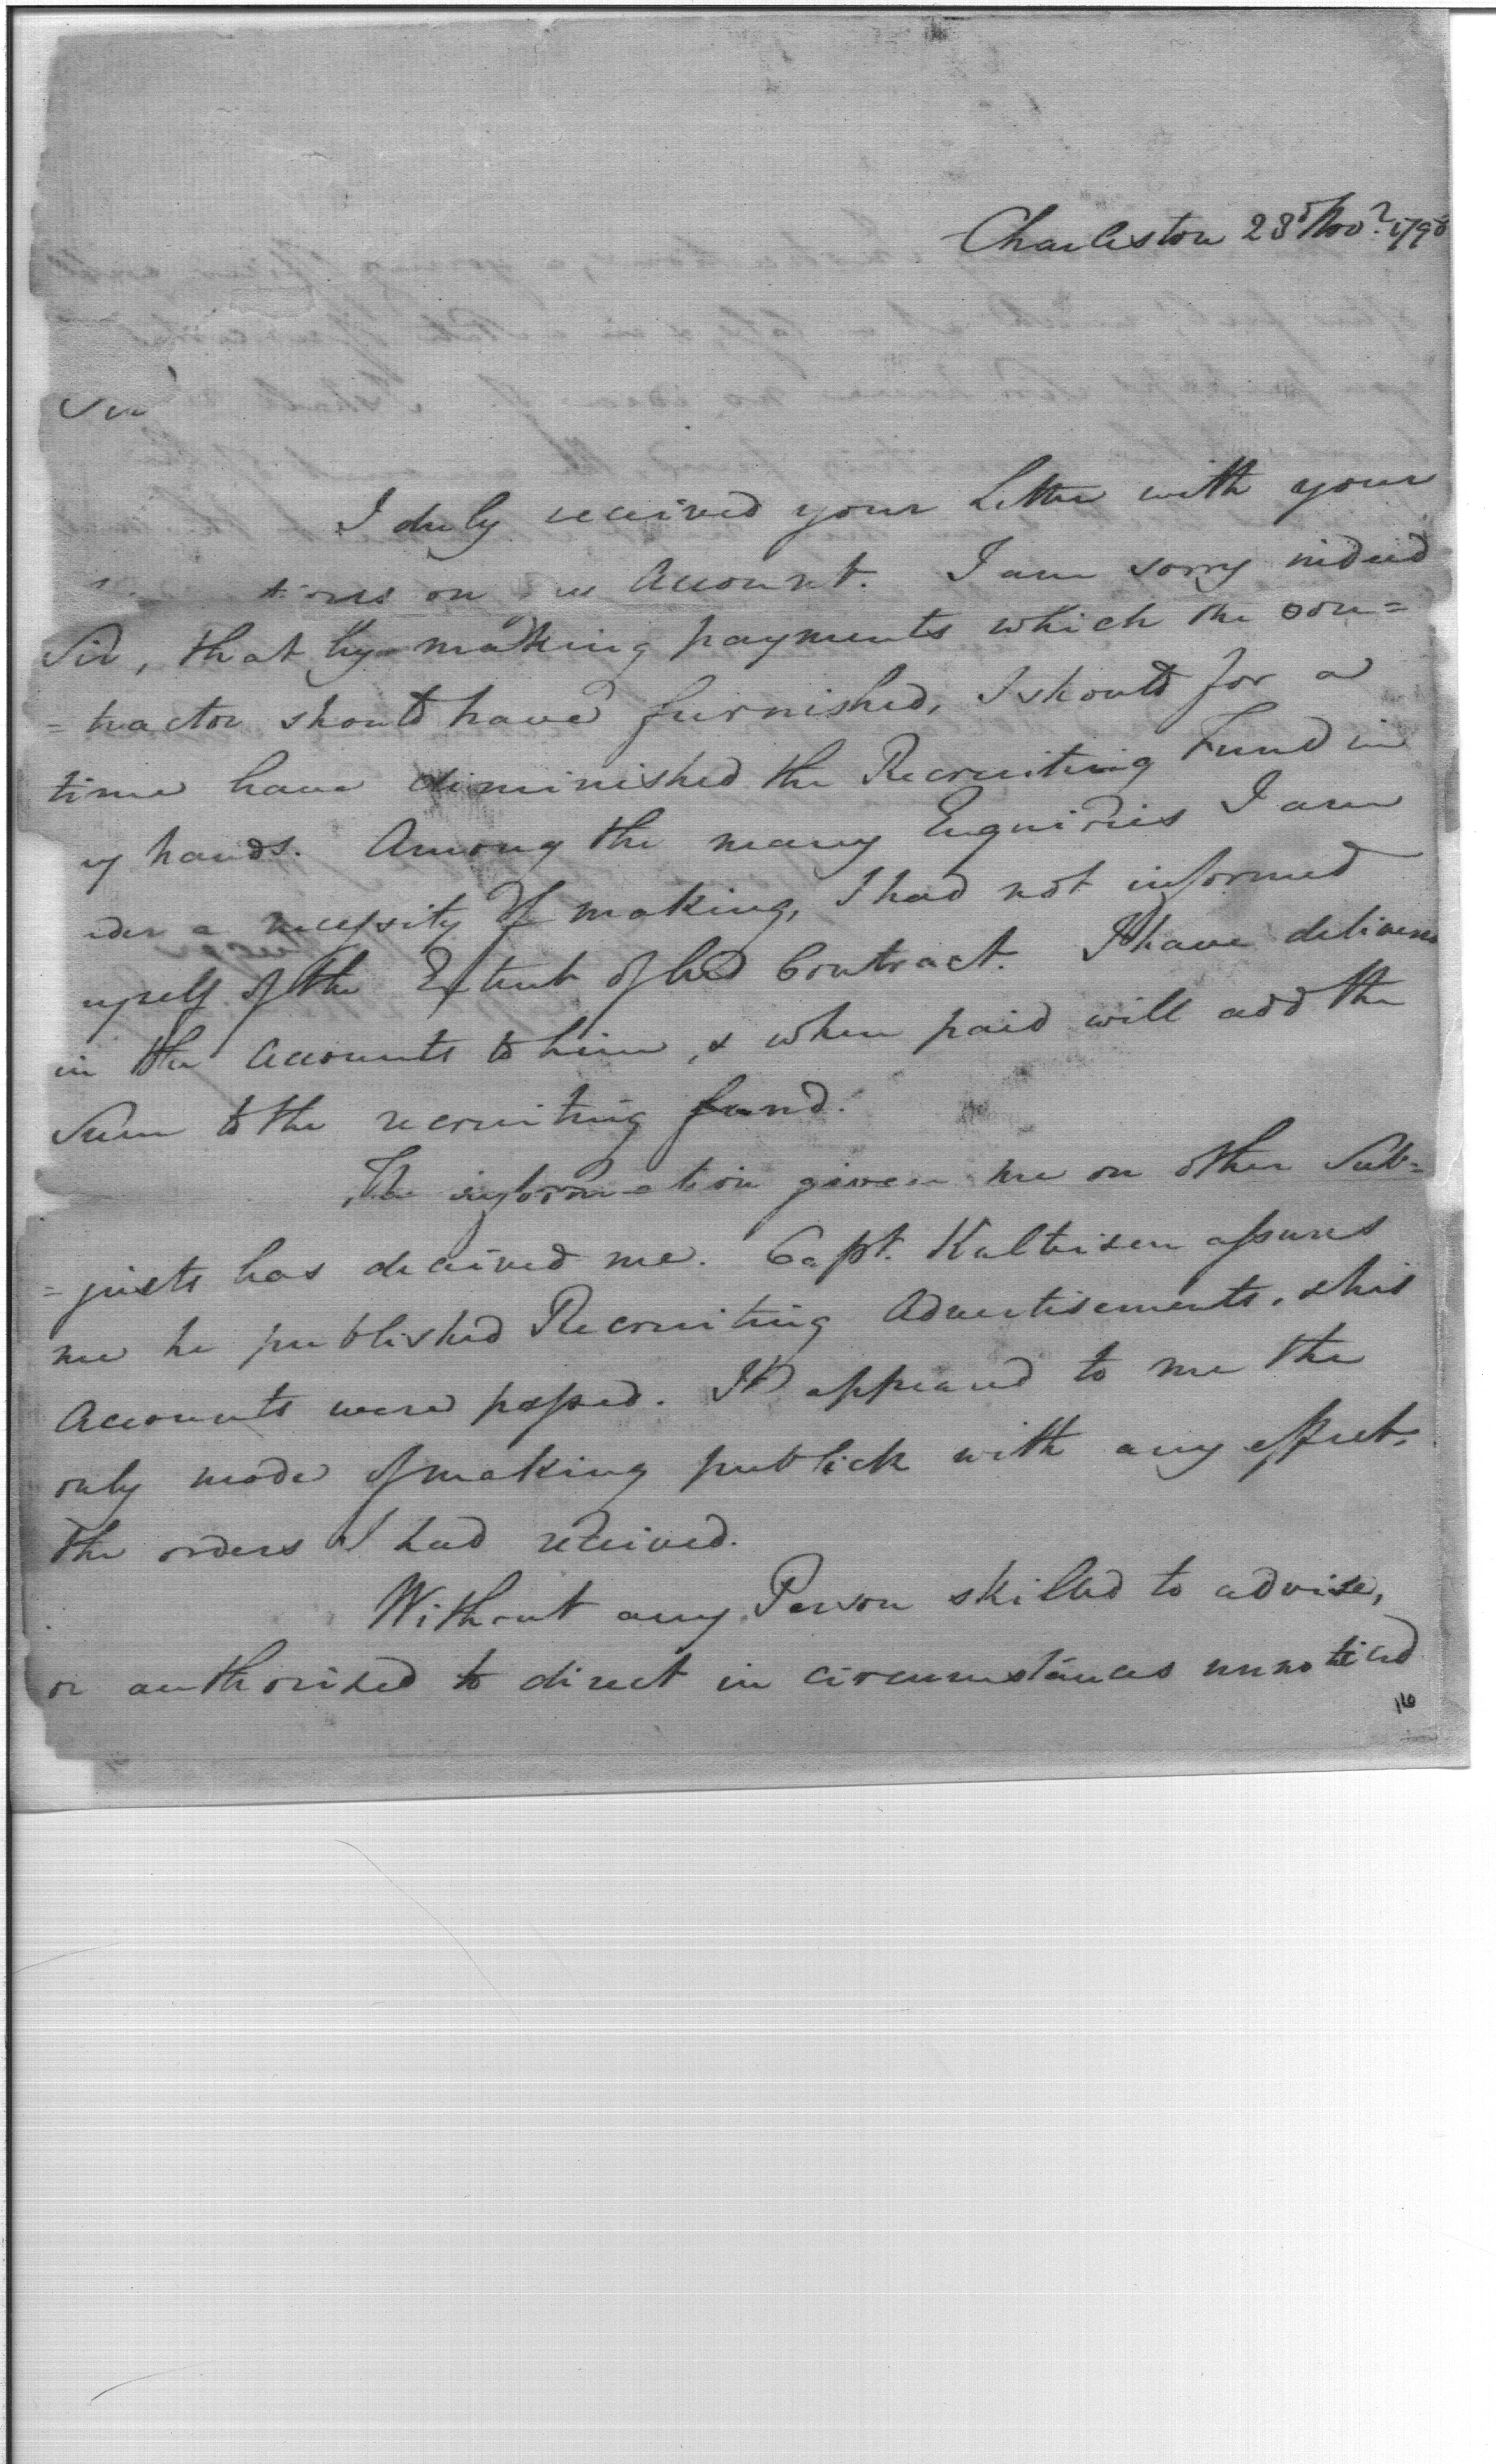 Charleston 23d Novr. 1798
Sir
I duly received your Letter with your
tions on Account. I am sorry indeed
Sir, that by making payments which the con=
=tractor should have furnished, I should for a
time have diminished the Recruiting Fund in
my hands. Among the many Enquiries I am
under a necessity of making, I had not informed
myself of the Extent of his Contract. I have delivered
in the Accounts to him, & when paid will add the
Sum to the recruiting fund.
The information given me on other Sub=
=jects has deceived me. Capt. Kalteisen assures
me he published Recruiting Advertisements, & his
Accounts were passed. It appeared to me the
only mode of making publick with any effect,
the orders I had received.
Without any Person skilled to advise,
or authorized to direct in circumstances unnoticed
16